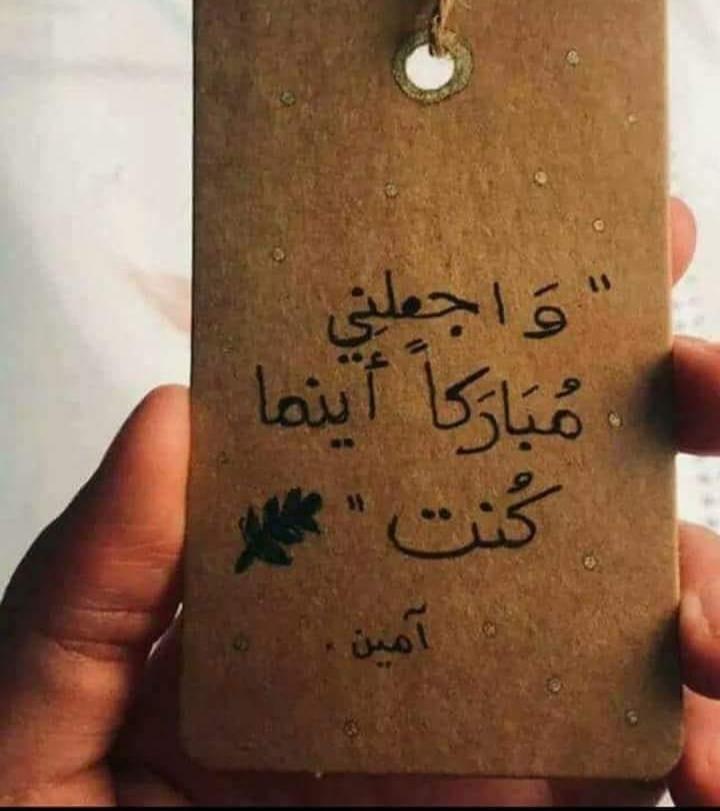 "وَ اجعلنِي
مُبَارَكاً أينما
كُنت"
آمين.